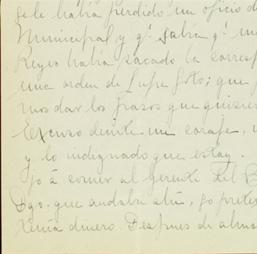 se le había perdido un oficio d
Municipal y qe. había qe. m
Reyes había sacado la corresp
una orden de Lupe Soto; que p
mos dar los pasos que quisier
tercuso decirte mi coraje,
y lo indignado que estoy.
jo á comer al Gerente del B
Dgo. que andaba aquí, so pretex
tenía dinero. Después de almo